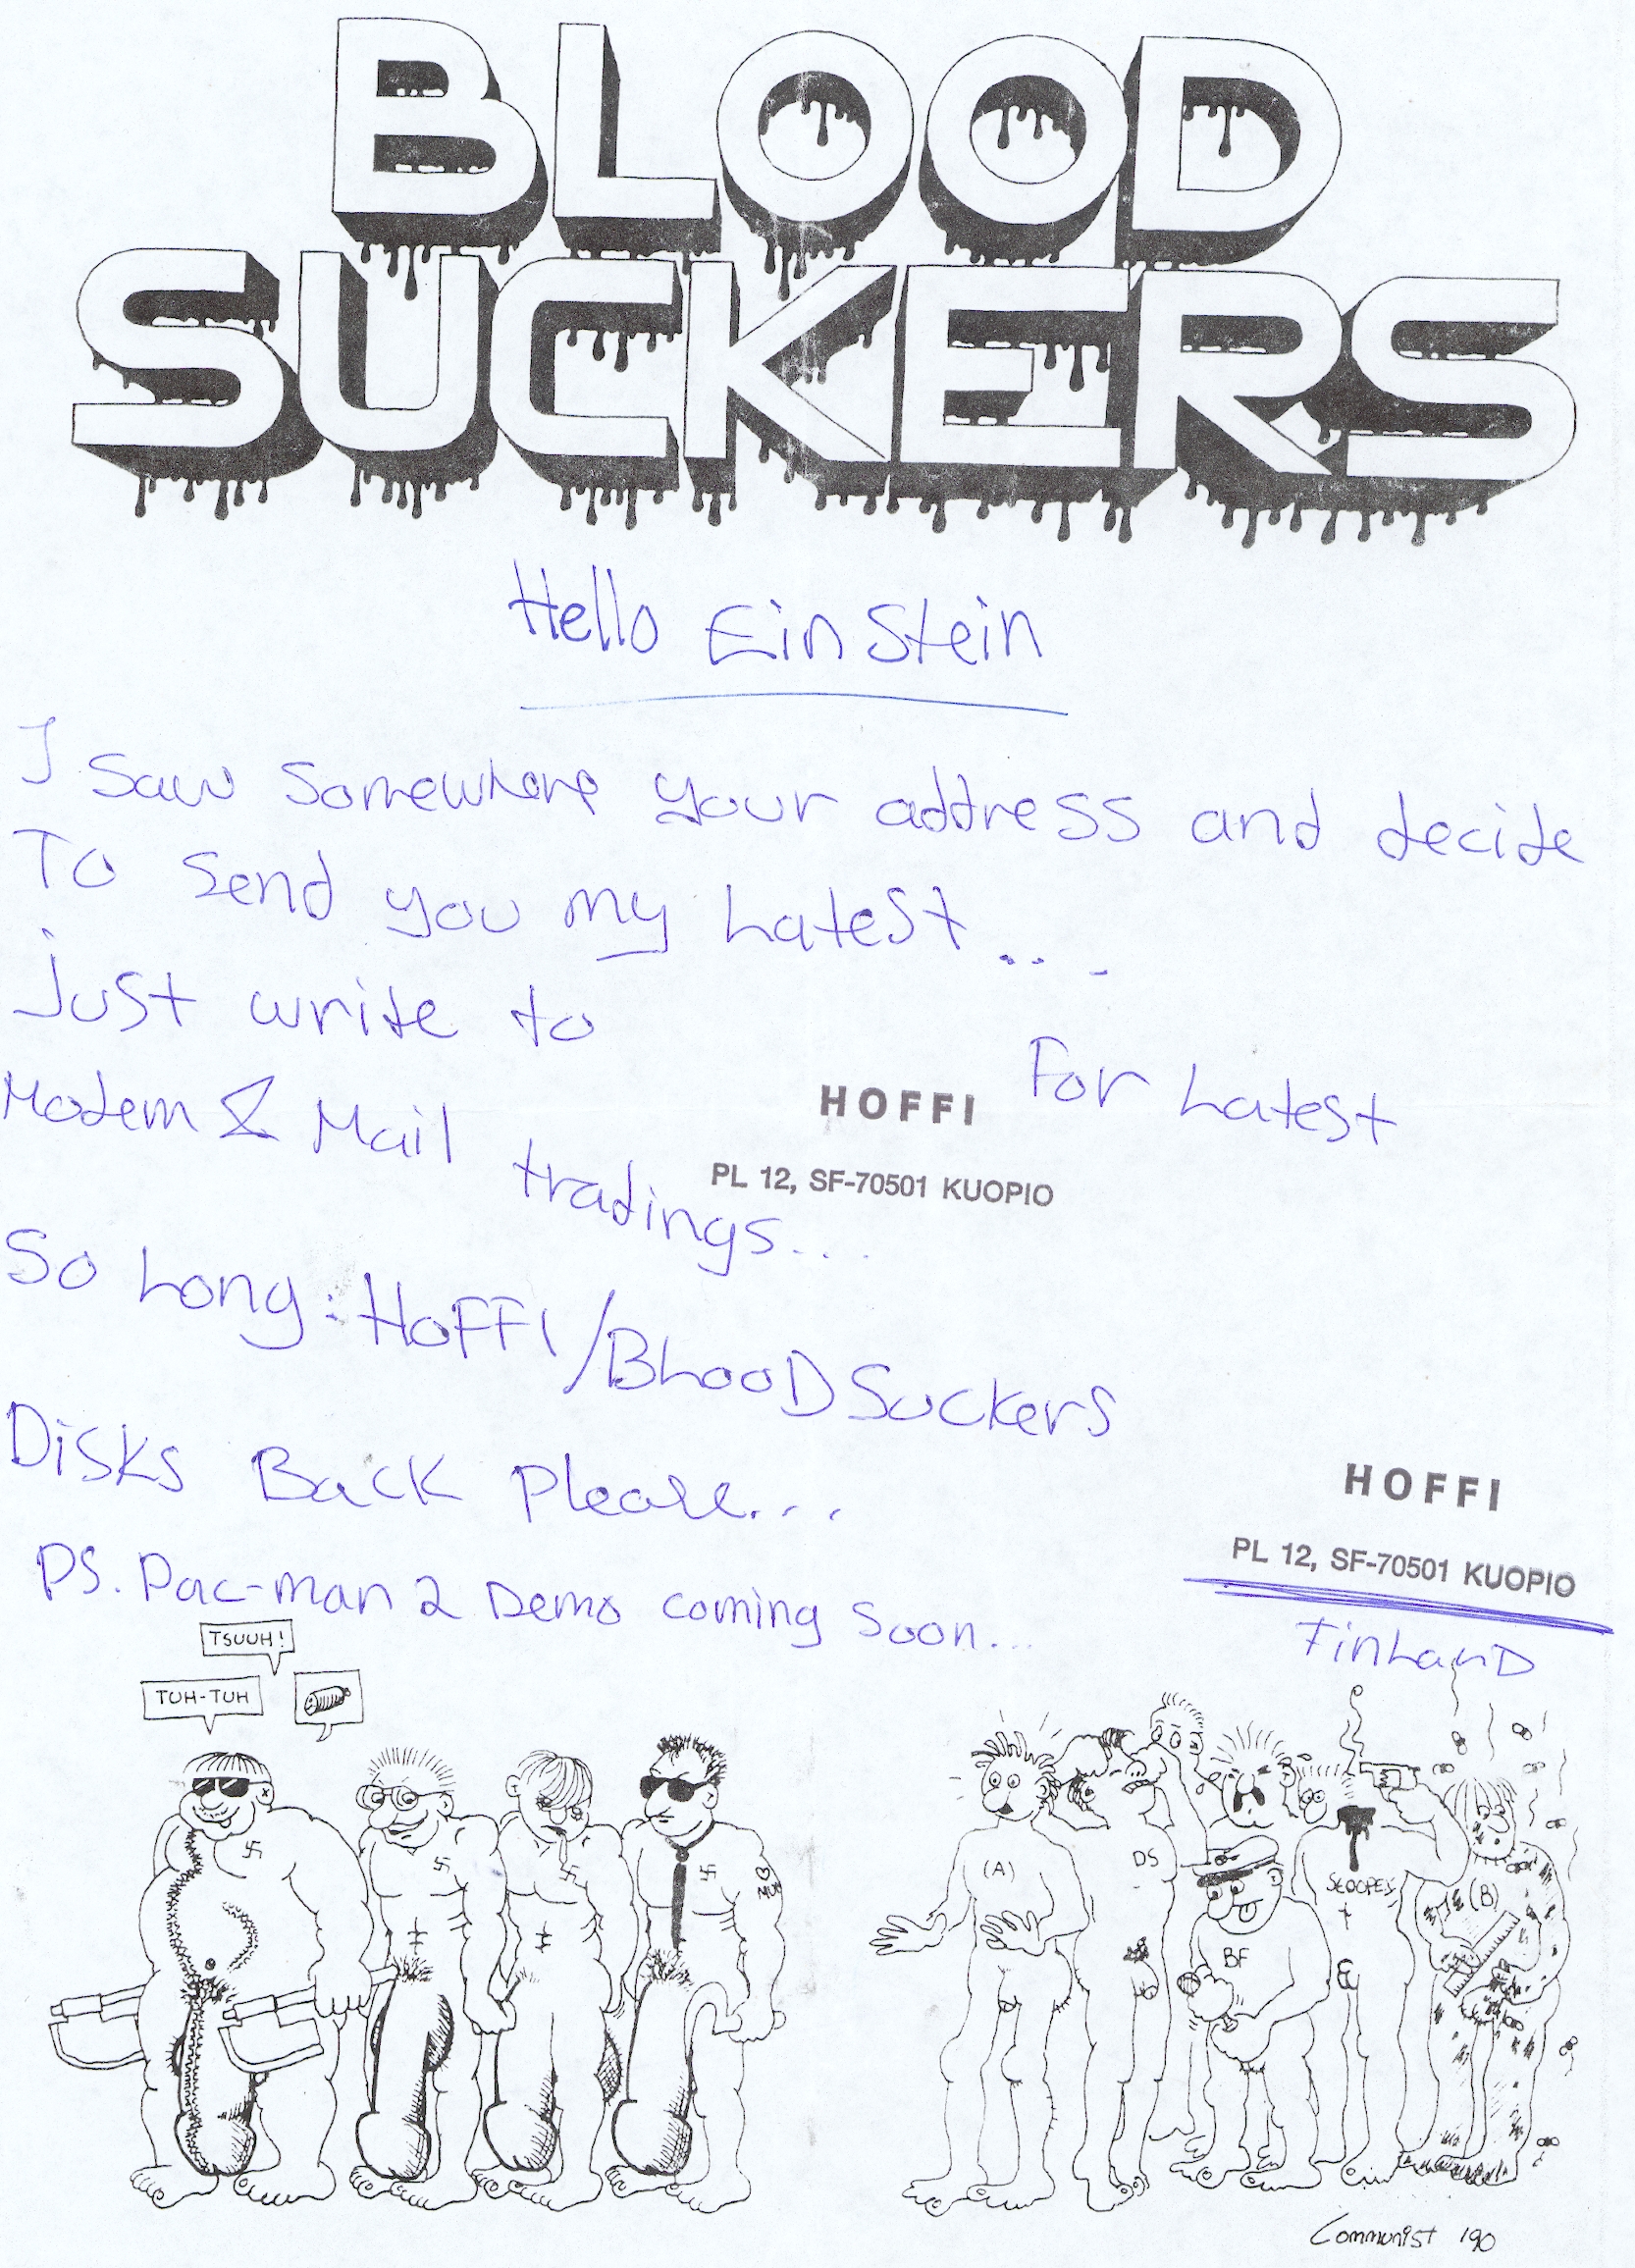 BLOOD
SUCKERS
Hello EinStein
I Saw Somewhere your address and decide
To Send you my Latest...
just write to
HOFFI
PL 12, SF-70501 KUOPIO
For Latest
Modem & Mail tradings...
So Long: HOFFI/BLOOD SUCKers
Disks Back Please...
PS. Pac-man 2 Demo coming Soon...
HOFFI
PL 12, SF-70501 KUOPIO
FinLanD
TSUUH!
TUH-TUH
(A)
DS
BF
(B)
Communist '90